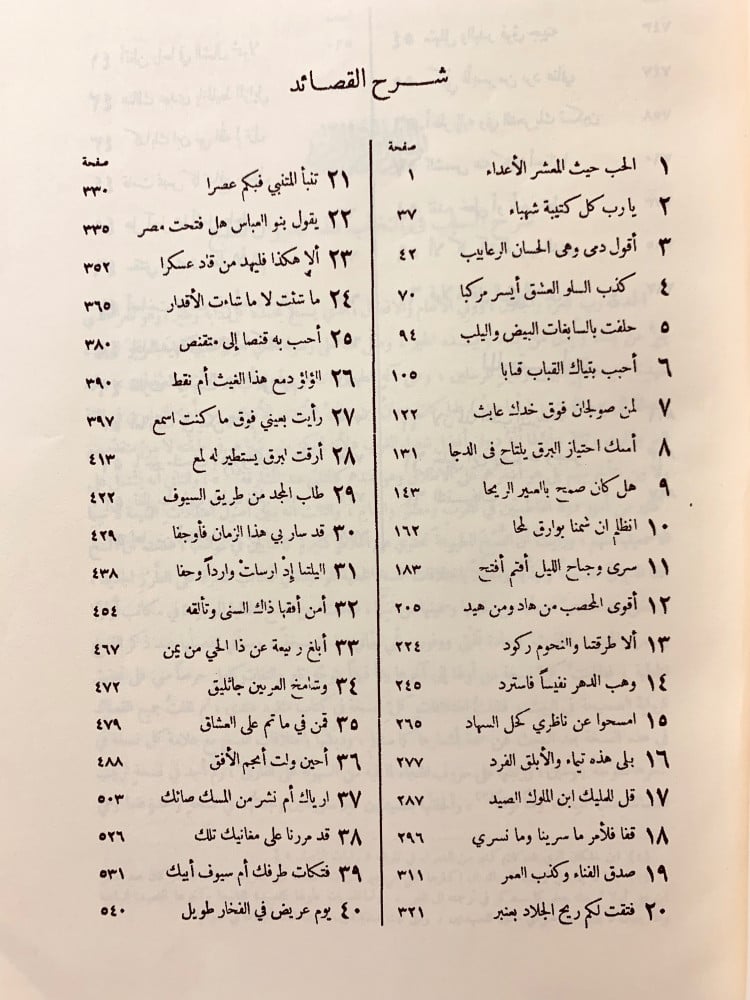 شرح القصائد
صفحة
١ الحب حيث المعشر الأعداء ١
٢ يا رب كل كتيبة شهباء ٣٧
٣ أقول دمى وهى الحسان الرعابيب ٤٢
٤ كذب السلو العشق أيسر مركبا ٧٠
٥ حلفت بالسابغات البيض واليلب ٩٤
٦ أحبب بتياك القباب قبابا ١٠٥
٧ لمن صولجان فوق خدك عابث ١٢٢
٨ أمسك اجتياز البرق يلتاح فى الدجا ١٣١
٩ هل كان ضمخ بالعبير الريحا ١٤٣
١٠ انظلم ان شمنا بوارق لمحا ١٦٢
١١ سرى وجناح الليل أقتم أفتح ١٨٣
١٢ أقوى المحصب من هاد ومن هيد ٢٠٥
١٣ ألا طرقتنا والنجوم ركود ٢٢٤
١٤ وهب الدهر نفيساً فاسترد ٢٤٥
١٥ امسحوا عن ناظري كحل السهاد ٢٦٥
١٦ بلى هذه تيماء والأبلق الفرد ٢٧٧
١٧ قل للمليك ابن الملوك الصيد ٢٨٧
١٨ قفا فلأمر ما سرينا وما نسري ٢٩٦
١٩ صدق الفناء وكذب العمر ٣١١
٢٠ فتقت لكم ريح الجلاد بعنبر ٣٢١
صفحة
٢١ تنبأ المتنبي فيكم عصرا ٣٣٠
٢٢ يقول بنو العباس هل فتحت مصر ٣٣٥
٢٣ ألا هكذا فليهد من قاد عسكرا ٣٥٢
٢٤ ما شئت لا ما شاءت الأقدار ٣٦٥
٢٥ أحبب به قنصا إلى متقنص ٣٨٠
٢٦ الؤلؤ دمع هذا الغيث أم نقط ٣٩٠
٢٧ رأيت بعيني فوق ما كنت اسمع ٣٩٧
٢٨ أرقت لبرق يستطير له لمع ٤١٣
٢٩ طاب المجد من طريق السيوف ٤٢٢
٣٠ قد سار بي هذا الزمان فأوجفا ٤٢٩
٣١ اليلتنا إذْ ارسلتْ وارداً وحفا ٤٣٨
٣٢ أمن أفقها ذاك السنى وتألقه ٤٥٤
٣٣ أبلغ ربيعة عن ذا الحي من يمن ٤٦٧
٣٤ وشامخ العرنين جاثليق ٤٧٢
٣٥ قمن في ماتم على العشاق ٤٧٩
٣٦ أحين ولت أنجم الأفق ٤٨٨
٣٧ ارياك أم نشر من المسك صائك ٥٠٣
٣٨ قد مررنا على مغانيك تلك ٥٢٦
٣٩ فتكات طرفك أم سيوف أبيك ٥٣١
٤٠ يوم عريض في الفخار طويل ٥٤٠